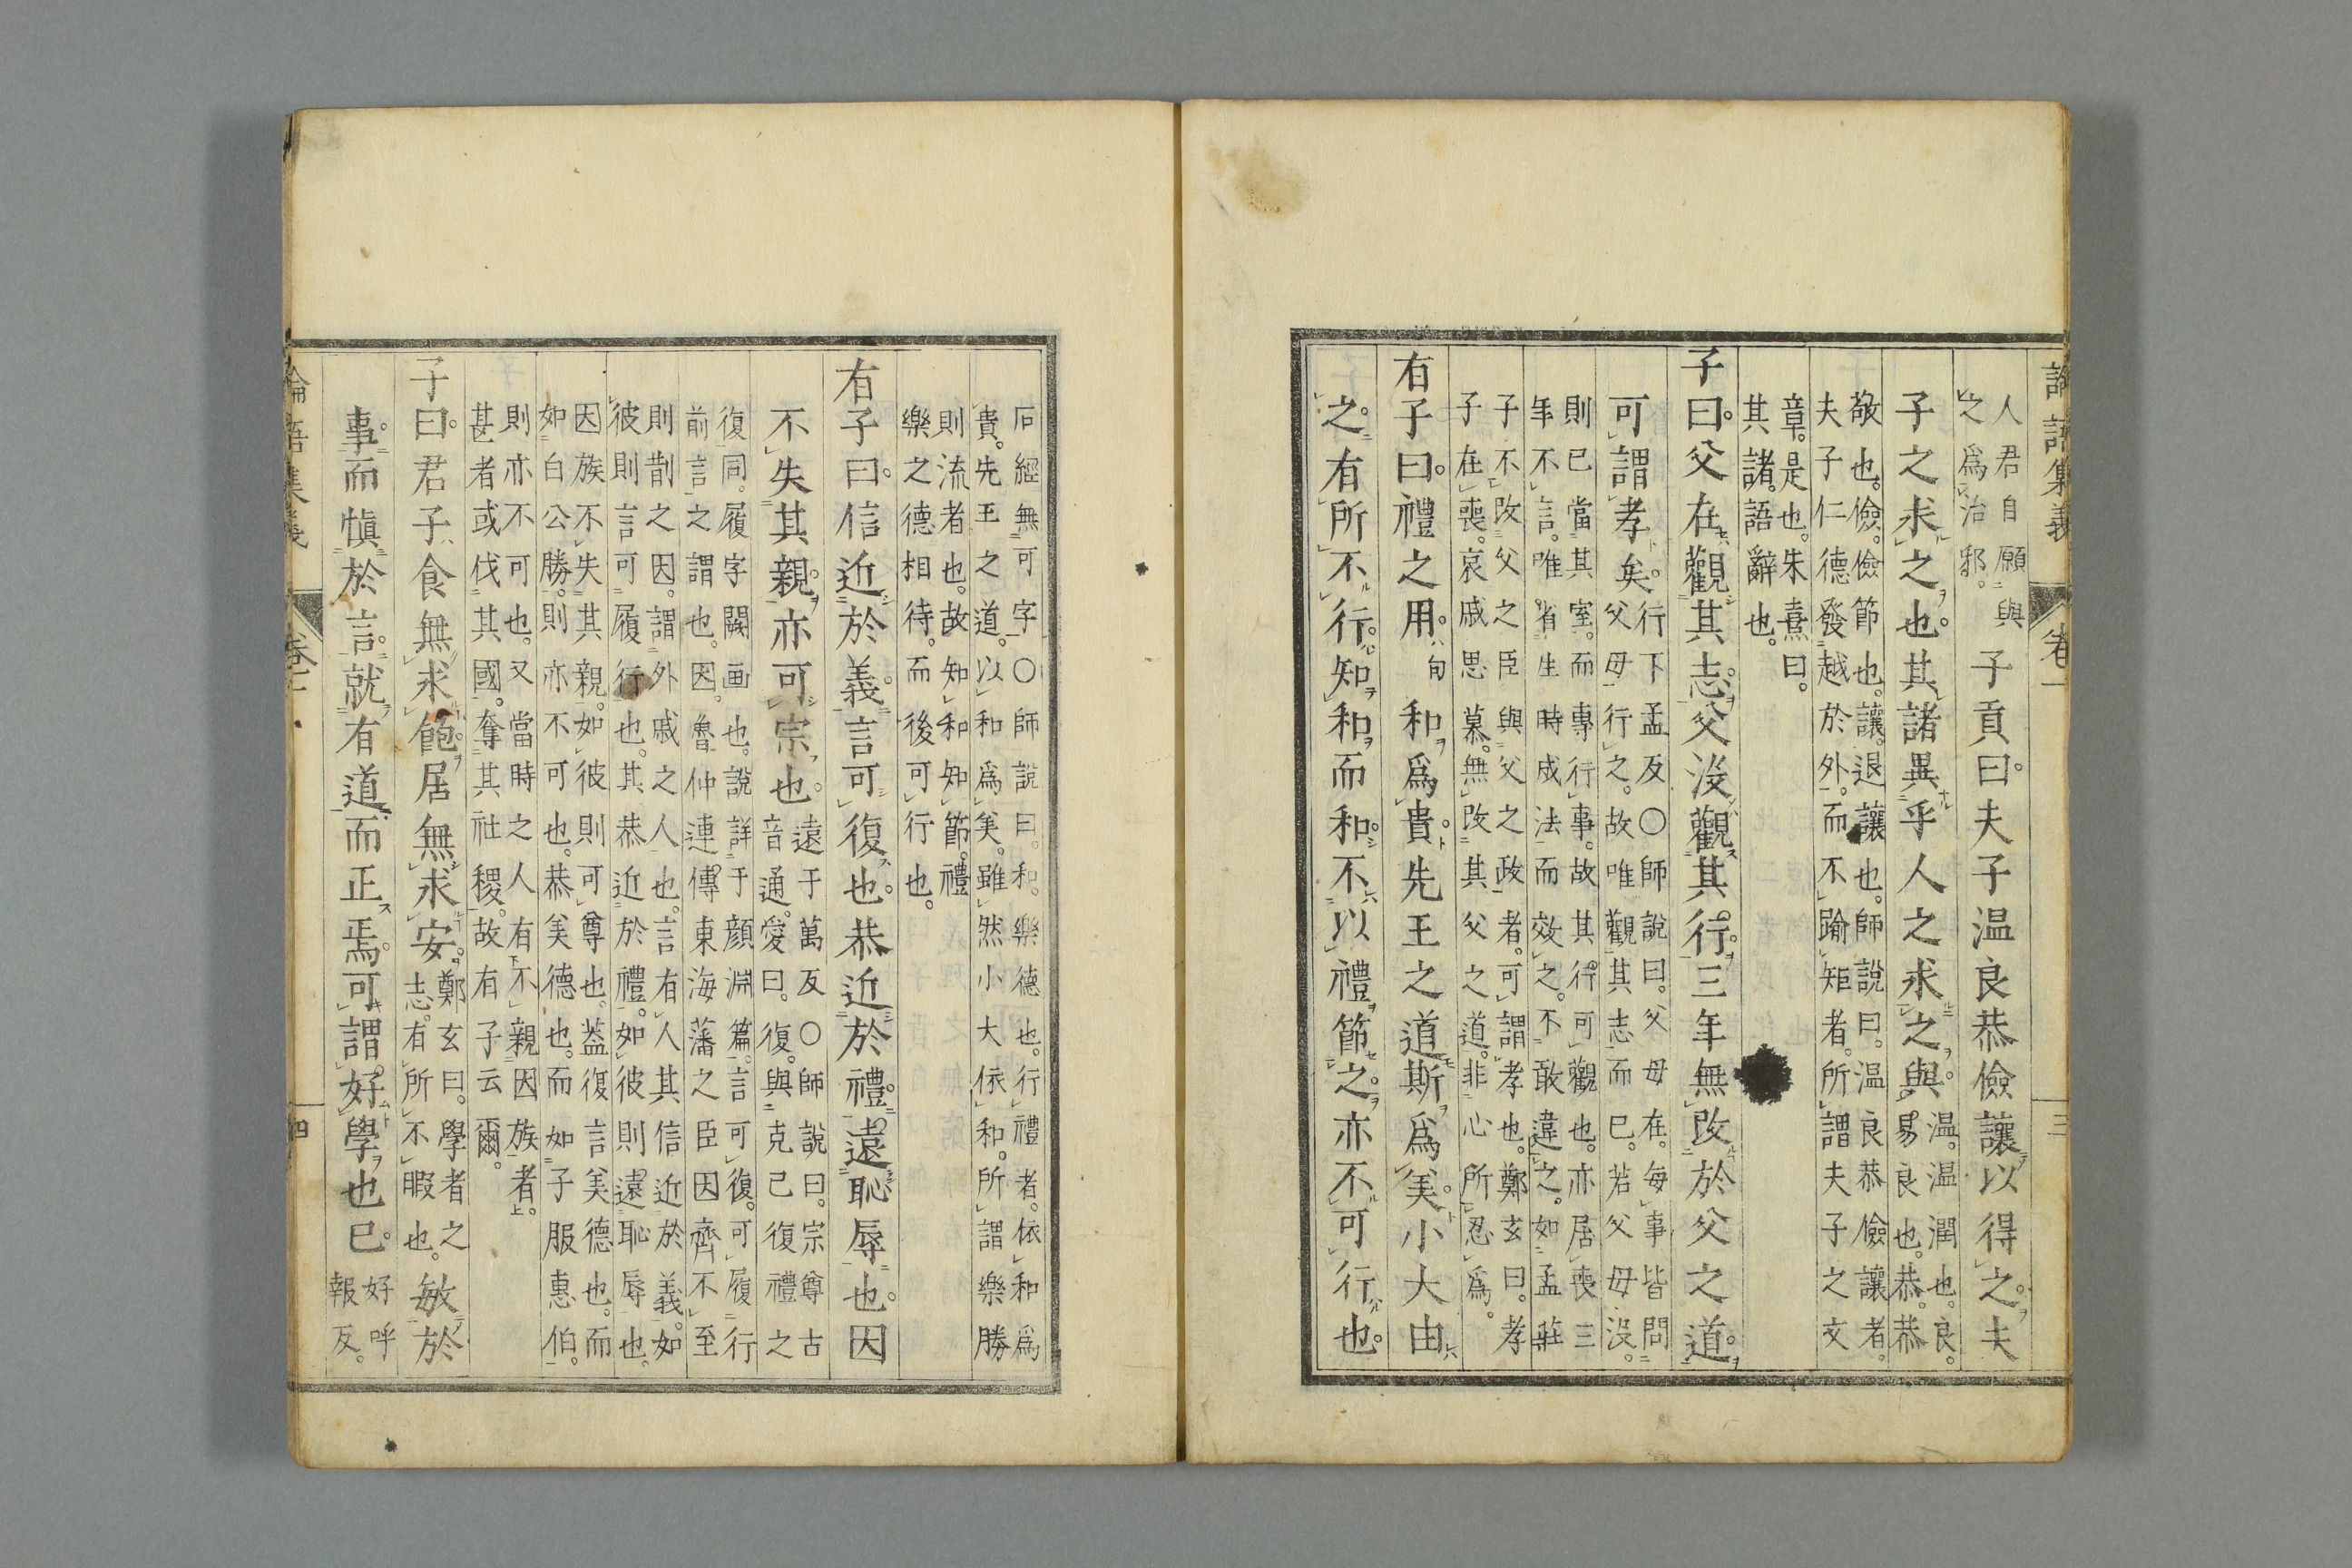 論語集義 卷一 三
人君自願與
之爲治邪。
子貢曰。夫子温良恭儉讓以得之。夫
子之求之也。其諸異乎人之求之與。
温。温潤也。良。
易良也。恭。恭
敬也。儉。儉節也。讓。退讓也。師說曰。温良恭儉讓者。
夫子仁德發越於外。而不踰矩者。所謂夫子之文
章。是也。朱熹曰。
其諸。語辭也。
子曰。父在觀其志。父沒觀其行。三年無改於父之道。
可謂孝矣。
行下孟反〇師說曰。父母在。每事皆問
父母行之。故唯觀其志而已。若父母沒。
則已當其室。而專行事。故其行可觀也。亦居喪三
年不言。唯省生時成法而效之。不敢違之。如孟莊
子不改父之臣與父之政者。可謂孝也。鄭玄曰。孝
子在喪。哀戚思慕。無改其父之道。非心所忍爲。
有子曰。禮之用。句和爲貴。先王之道斯爲美。小大由
之。有所不行。知和而和。不以禮節之。亦不可行也。
石經無可字〇師說曰。和。樂德也。行禮者。依和爲
貴。先王之道。以和爲美。雖然小大依和。所謂樂勝
則流者也。故知和知節。禮
樂之德相待。而後可行也。
有子曰。信近於義。言可復也。恭近於禮。遠恥辱也。因
不失其親。亦可宗也。
遠于萬反〇師說曰。宗尊古
音通。愛曰。復。與克己復禮之
復同。履字闕画也。說詳于顏淵篇。言可復。可履行
前言之謂也。因。魯仲連傳東海藩之臣因齊不至
則割之因。謂外戚之人也。言有人其信近於義。如
彼則言可履行也。其恭近於禮。如彼則遠恥辱也。
因族不失其親。如彼則可尊也。葢復言美德也。而
如白公勝。則亦不可也。恭美德也。而如子服惠伯。
則亦不可也。又當時之人有不親因族者。
甚者或伐其國。奪其社稷。故有子云爾。
子曰。君子食無求飽。居無求安。
鄭玄曰。學者之
志。有所不暇也。
敏於
事。而愼於言。就有道而正焉。可謂好學也已。
好呼
報反。
論語集義 卷一 四